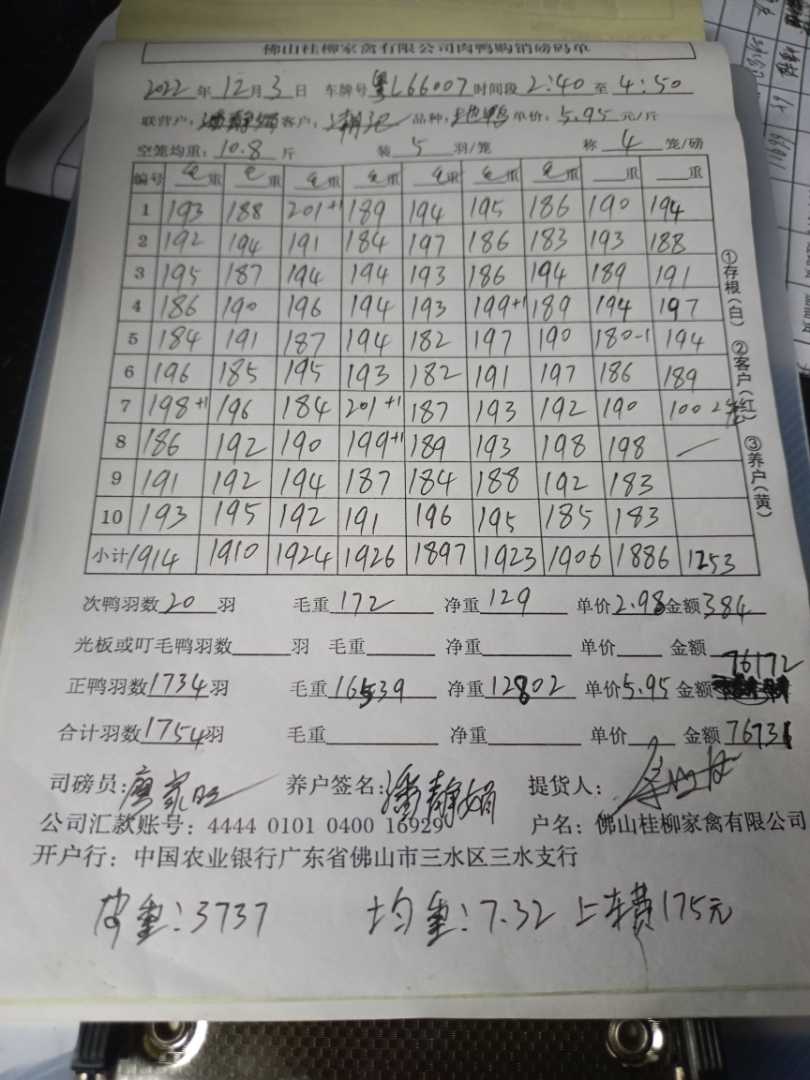 佛山桂柳家禽有限公司肉鸭购销磅码单
2022年12月3日 车牌号粤L66007时间段2:40至4:50
联营户:潘静娟 客户: 品种: 鸭 单价:5.95元/斤
空笼均重:10.8斤 装5羽/笼 称4笼/磅
编号 毛重 毛重 毛重 毛重 毛重 毛重 毛重 重 重
1 193 188 201+1 189 194 195 186 190 194
2 192 194 191 184 197 186 183 193 188
3 195 187 194 194 193 186 194 189 191
4 186 190 196 194 193 199+1 189 194 197
5 184 191 187 194 182 197 190 180-1 194
6 196 185 195 193 182 191 197 186 189
7 198+1 196 184 201+1 187 193 192 190 100 2笼
8 186 192 190 199+1 189 193 198 198 —
9 191 192 194 187 184 188 192 183
10 193 195 192 191 196 195 185 183
小计 1914 1910 1924 1926 1897 1923 1906 1886 1253
①存根(白) ②客户(红) ③养户(黄)
次鸭羽数20羽 毛重172 净重129 单价2.98金额384
光板或叮毛鸭羽数 羽 毛重 净重 单价 金额
76172
正鸭羽数1734羽 毛重16539 净重12802 单价5.95 金额
合计羽数1754羽 毛重 净重 单价 金额
司磅员:廖家旺 养户签名:潘静娟 提货人:
公司汇款账号:4444 0101 0400 16929 户名:佛山桂柳家禽有限公司
开户行:中国农业银行广东省佛山市三水区三水支行
皮重:3737 均重:7.32 上车费175元